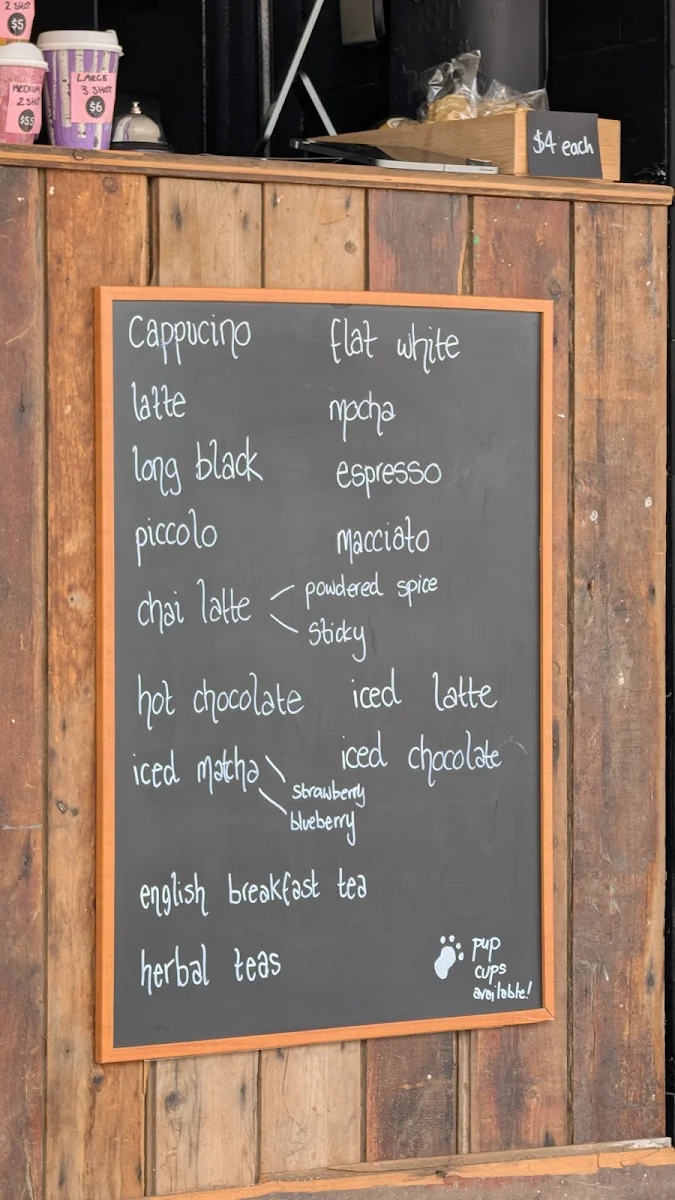 2 SHOT
$5
MEDIUM
2 SHOT
$5.5
LARGE
3 SHOT
$6
$4 each
Cappucino flat white
latte mocha
long black espresso
piccolo macciato
chai latte powdered spice
sticky
hot chocolate iced latte
iced matcha iced chocolate
strawberry
blueberry
english breakfast tea
herbal teas
pup
cups
available!